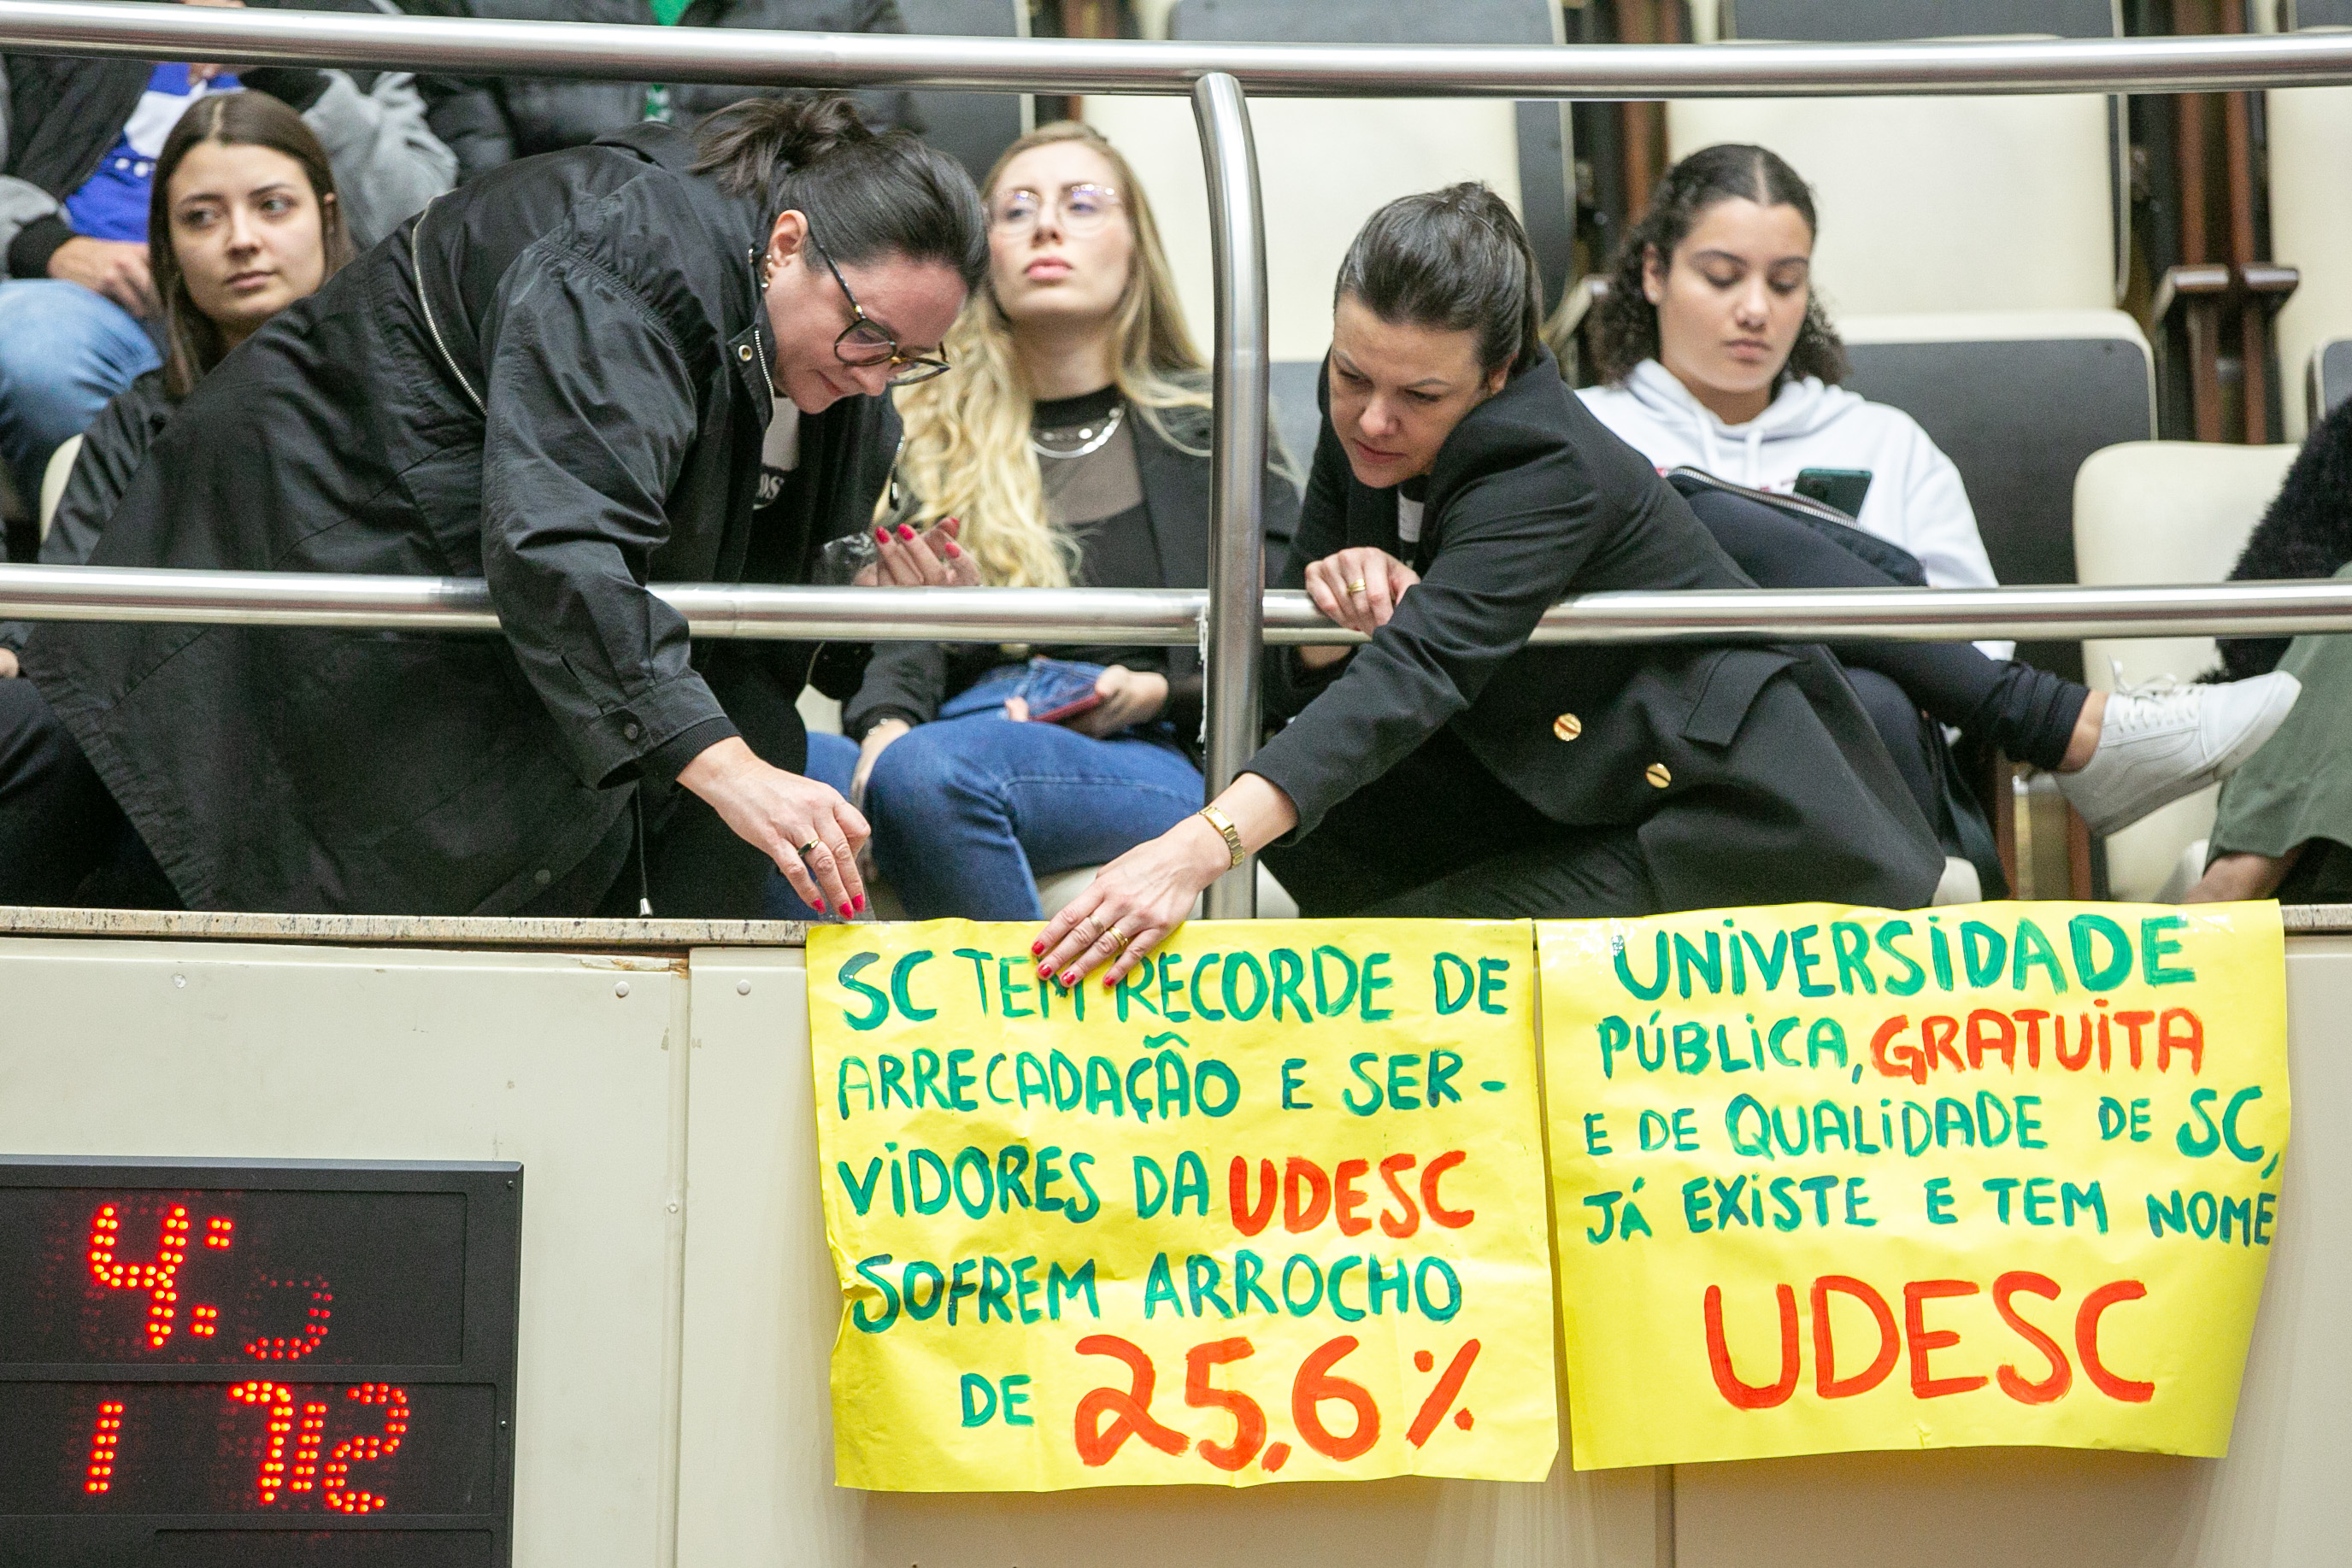 SC TEM RECORDE DE
ARRECADAÇÃO E SER-
VIDORES DA UDESC
SOFREM ARROCHO
DE 25,6%
UNIVERSIDADE
PÚBLICA, GRATUITA
E DE QUALIDADE DE SC,
JÁ EXISTE E TEM NOME
UDESC